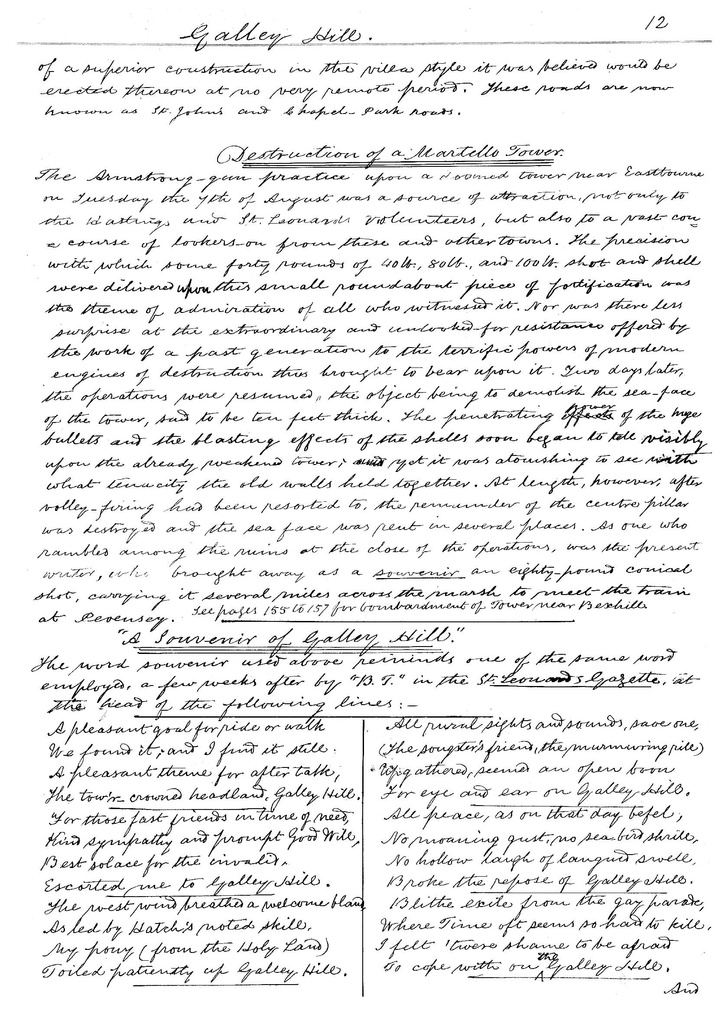 Galley Hill.
12
of a superior construction in the villa style it was believed would be
erected thereon at no very remote period. These roads are now
known as St. Johns and Chapel-Park roads.
Destruction of a Martello Tower.
The Armstrong-gun practice upon a doomed tower near Eastbourne
on Tuesday the 7th of August was a source of attraction, not only to
the Hastings and St. Leonards Volunteers, but also to a vast con=
=course of lookers-on from these and other towns. The precision
with which some forty rounds of 40lb., 80lb., and 100lb. shot and shell
were delivered upon this small roundabout piece of fortification was
the theme of admiration of all who witnessed it. Nor was there less
surprise at the extraordinary and unlooked-for resistance offered by
the work of a past generation to the terrific powers of modern
engines of destruction thus brought to bear upon it. Two days later,
the operations were resumed, the object being to demolish the sea-face
of the tower, said to be ten feet thick. The penetrating of the huge
bullets and the blasting effects of the shells soon began to tell visibly
upon the already weakened tower; and yet it was astonishing to see with
what tenacity the old walls held together. At length, however, after
volley-firing had been resorted to, the remainder of the centre pillar
was destroyed and the sea face was rent in several places. As one who
rambled among the ruins at the close of the operations, was the present
writer, who brought away as a souvenir an eighty-pound conical
shot, carrying it several miles across the marsh to meet the train
at Pevensey. See pages 155 to 157 for bombardment of Tower near Bexhill
"A Souvenir of Galley Hill."
The word souvenir used above reminds one of the same word
employed, a few weeks after by "B.T." in the St. Leonards Gazette, at
the head of the following lines:-
A pleasant goal for ride or walk
We found it, and I find it still:
A pleasant theme for after talk,
The tow'r-crowned headland, Galley Hill.
For those fast friends in time of need,
Kind sympathy and prompt Good Will,
Best solace for the invalid,
Escorted me to Galley Hill.
The west wind breathed a welcome bland
As led by Hatch's noted skill,
My pony (from the Holy Land)
Toiled patiently up Galley Hill.
All rural sights and sounds, save one,
(The songster's friend, the murmuring rill)
Upgathered, seemed an open boon
For eye and ear on Galley Hill.
All peace, as on that day befel,
No moaning gust, no sea-bird shrill,
No hollow laugh of languid swell,
Broke the repose of Galley Hill.
Blithe exite from the gay parade,
Where Time oft seems so hard to kill,
I felt 'twere shame to be afraid
To cope with on the Galley Hill.
And